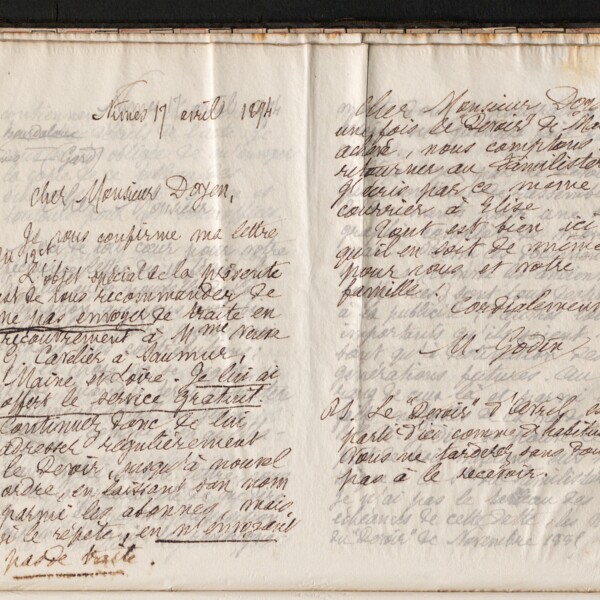 Nimes 17 avril 1894
cher Monsieur Doyen,
Je vous confirme ma lettre
L'objet spécial de la présente
est de vous recommander de
ne pas envoyer de traite en
recouvrement à Mme Veuve
G. Cavelier à Saumur,
Maine et Loire. Je lui ai
offert le service gratuit
Continuez donc de lui
adresser régulièrement
le Devoir, jusqu'à nouvel
ordre, en laissant son nom
parmi les abonnés, mais
je le répète, en n'envoyant
pas de traite.
Cher Monsieur Doy
une fois le Devoir de Ma
achevé, nous comptons
retourner au Familistè
J'écris par ce même
courrier à Elise
Tout est bien ici
qu'il en soit de même
pour vous et votre
famille!
Cordialement
M. Godin
P.S. Le "Devoir" d'Avril
parti d'ici comme d'habitu
vous ne tarderez sans dou
pas à le recevoir.